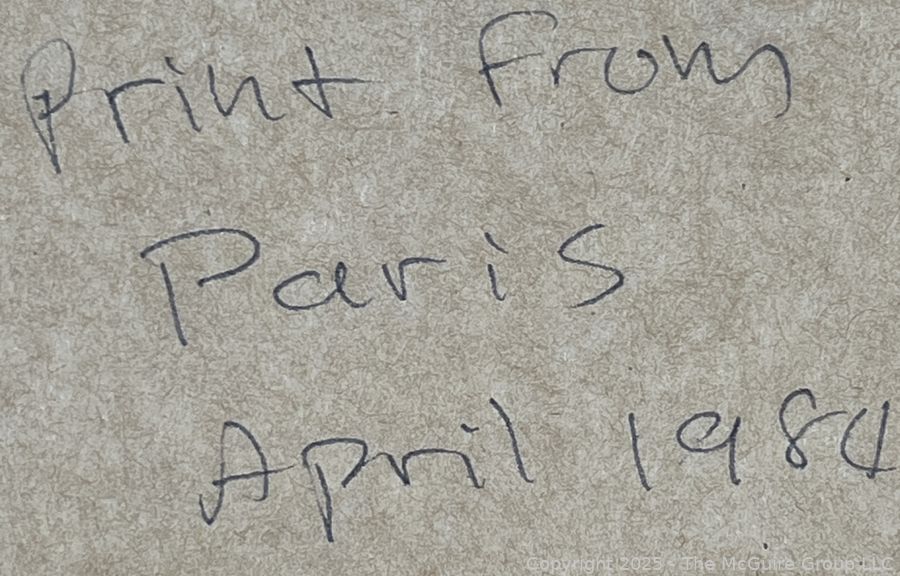 Print from
Paris
April 1984
Copyright 2025 - The McGuire Group LLC